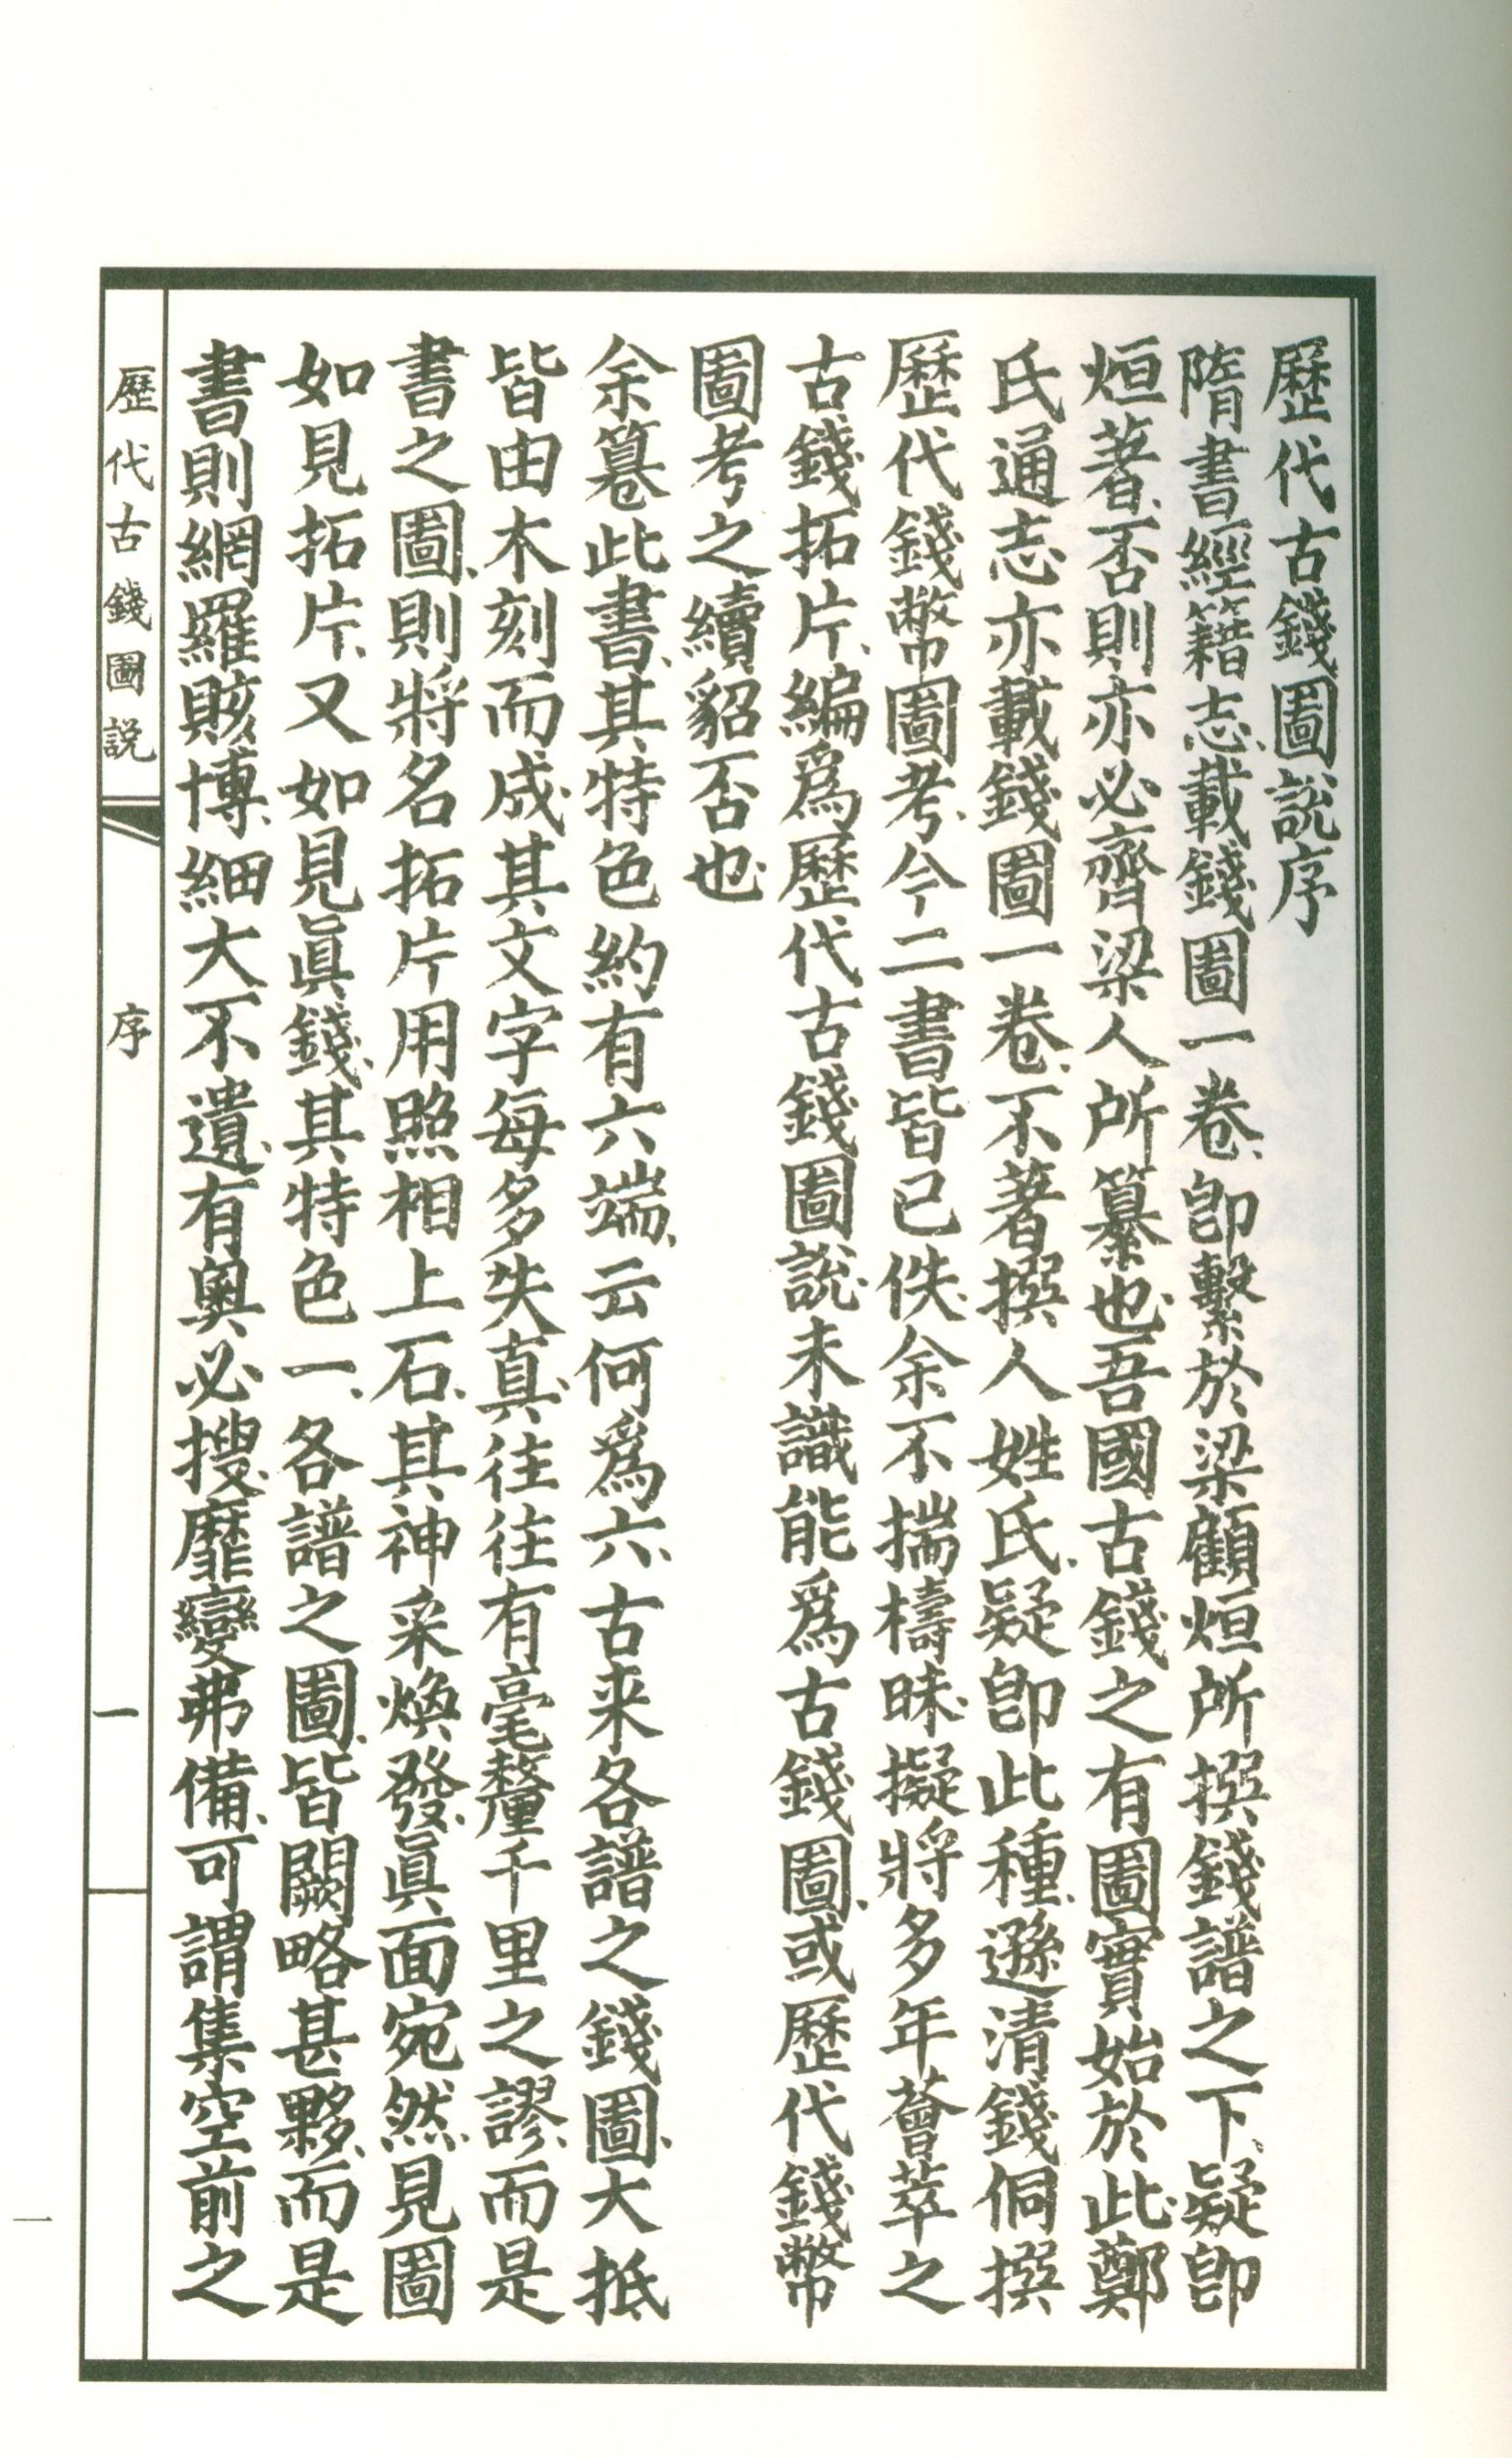 歷代古錢圖說序
隋書經籍志、載錢圖一卷、卽繫於梁顧烜所撰錢譜之下、疑卽
烜著、否則亦必齊梁人所纂也、吾國古錢之有圖實始於此、鄭
氏通志亦載錢圖一卷、不著撰人姓氏、疑卽此種、遜清錢侗撰
歷代錢幣圖考、今二書皆已佚、余不揣檮昧、擬將多年薈萃之
古錢拓片、編爲歷代古錢圖說、未識能爲古錢圖、或歷代錢幣
圖考之續貂否也、
余纂此書、其特色約有六端、云何爲六、古来各譜之錢圖、大抵
皆由木刻而成、其文字每多失真、往往有毫釐千里之謬、而是
書之圖、則將名拓片用照相上石、其神采煥發、眞面宛然、見圖
如見拓片、又如見眞錢、其特色一、各譜之圖、皆闕略甚夥、而是
書則網羅賅博、細大不遺、有奧必搜、靡變弗備、可謂集空前之
歷代古錢圖說
序
一
一